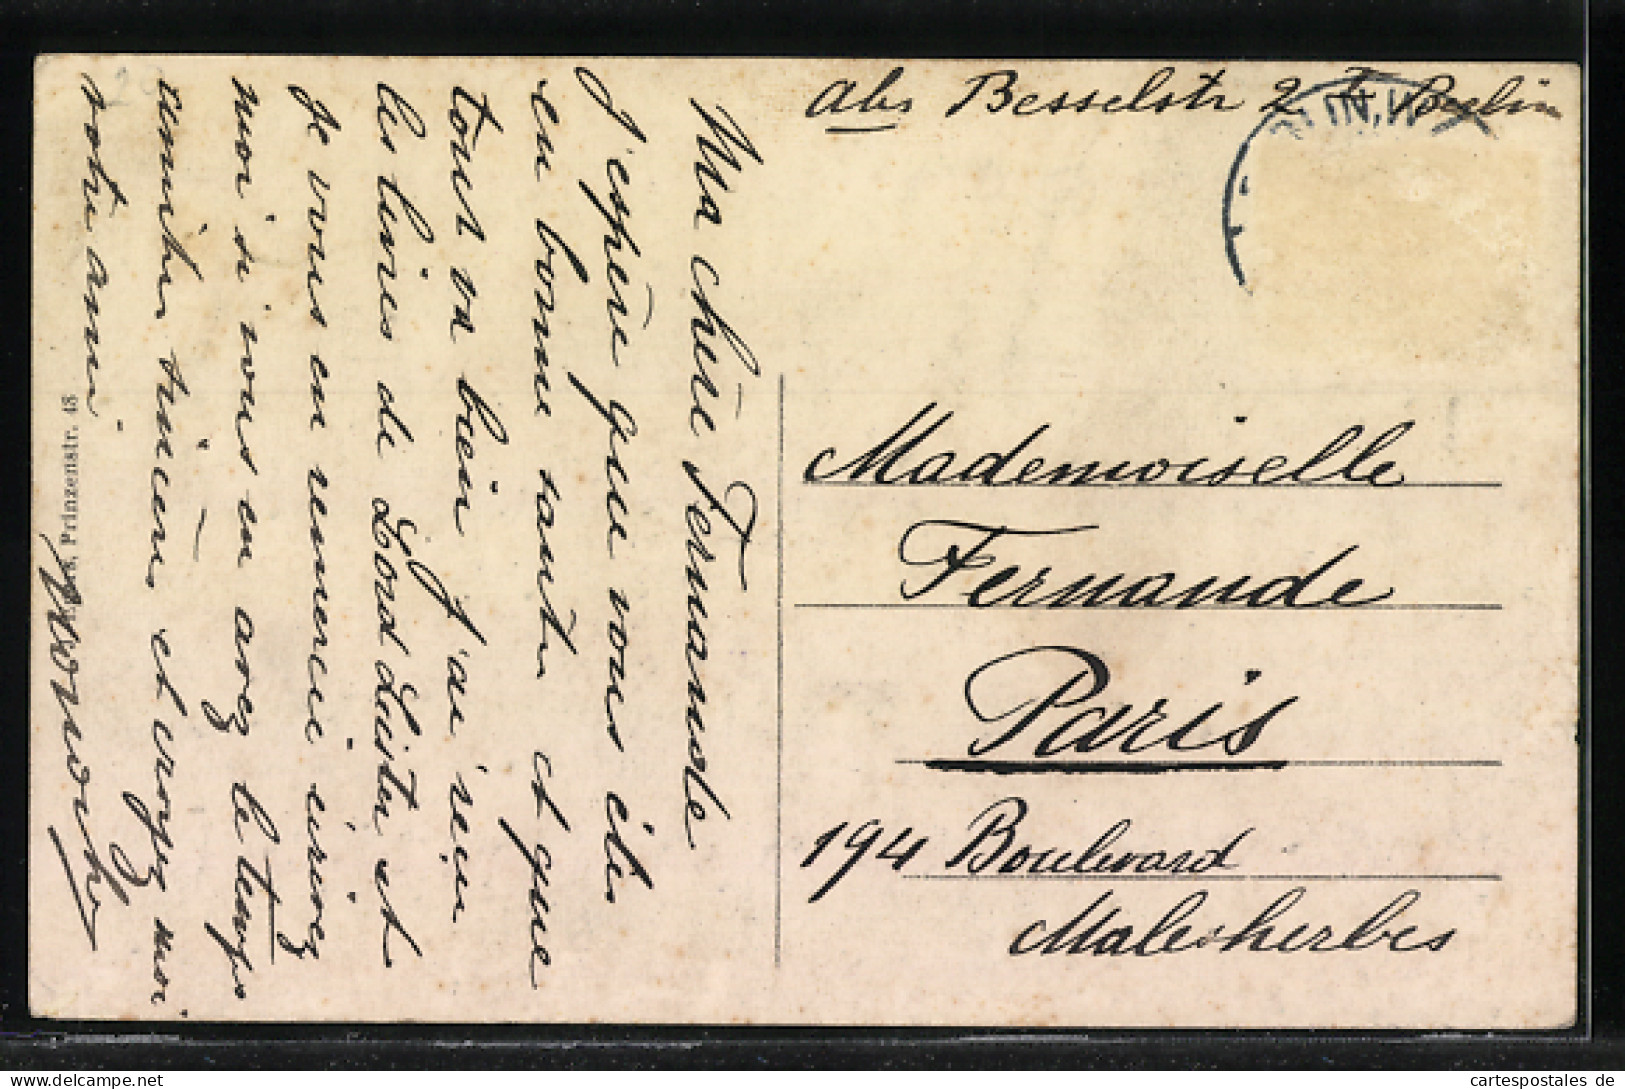 Abs Besselstr 2 I Berlin
Ma chère Fernande
J'espère que vous êtes
en bonne santé et que
tout va bien J'ai reçu
les livres de Lord Lister et
Je vous en remercie écrivez
moi si vous en avez le temps
remercie et croyez moi
votre amie
Prinzenstr. 43
Mademoiselle
Fernande
Paris
194 Boulevard
Malesherbes
cartespostales de